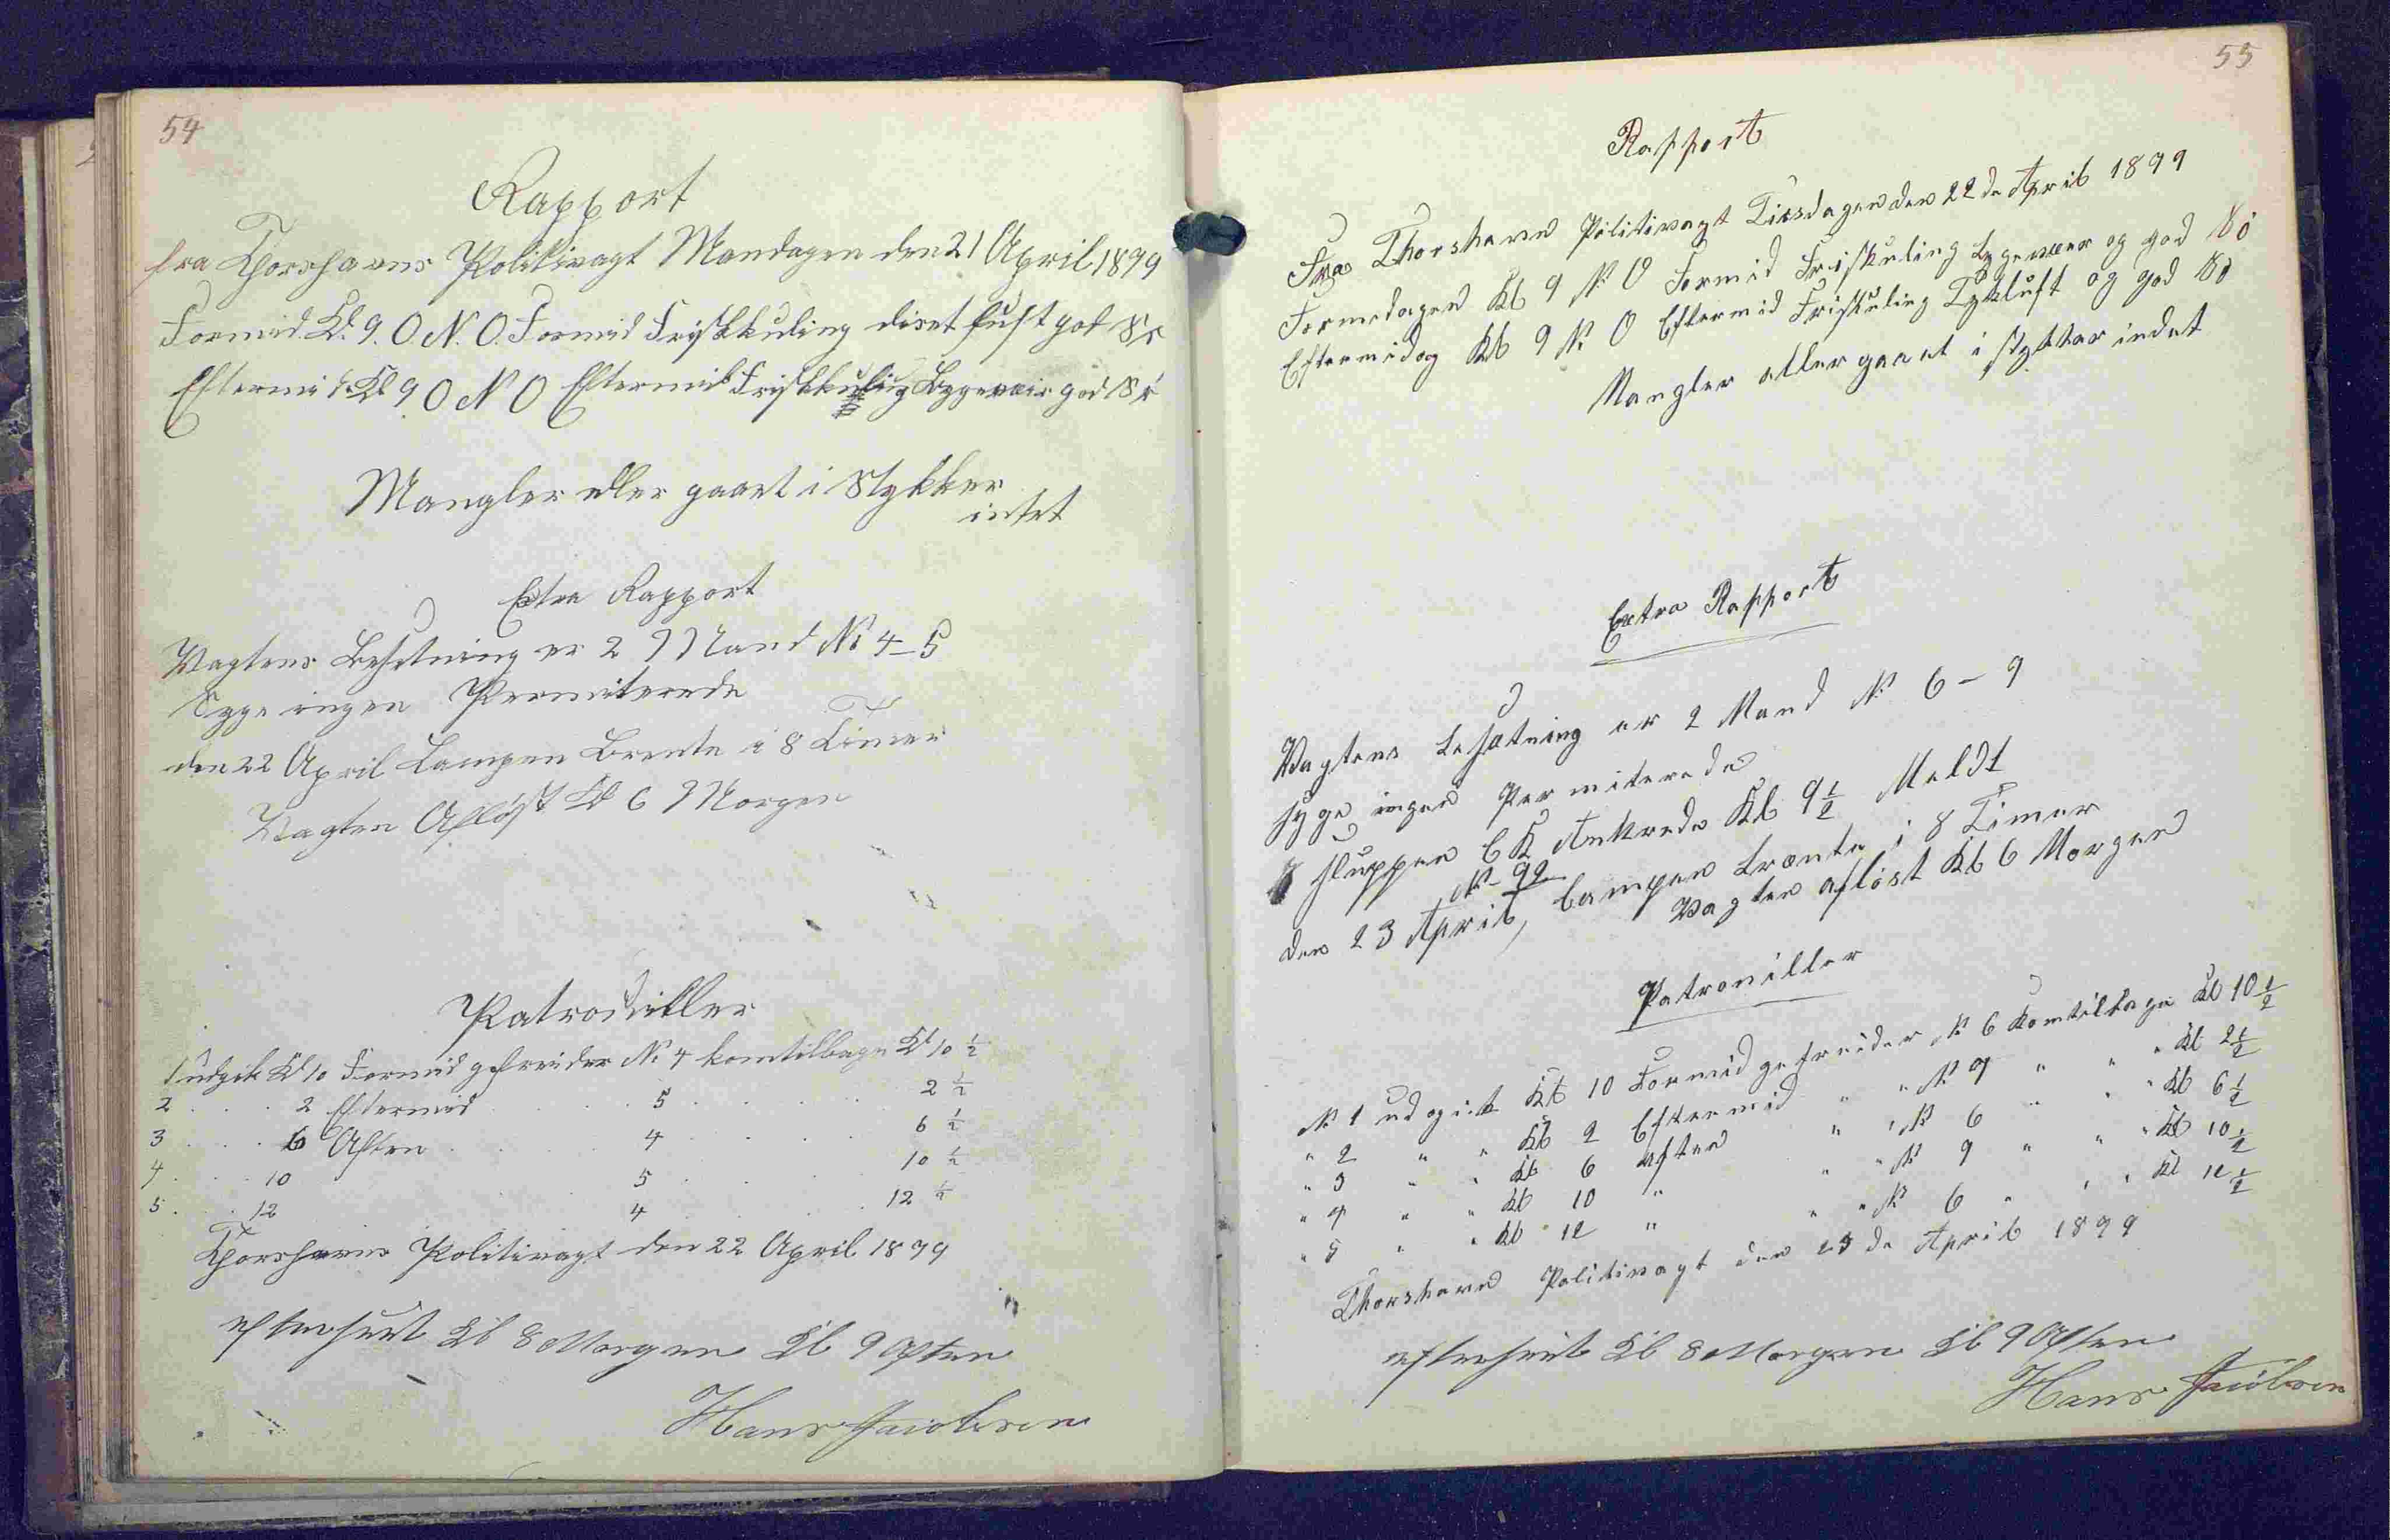 54
Rapport
fra Thorshavns Politivagt Mandagen den 21 April 1879
Formid. Kl. 9. O. N. O. Formid Friskkuling diset luft god Sø
Eftermid. Kl 9. O N O Eftermid Friskkuling Bygevær god Sø
Mangler eller gaaet i Stykker
intet
Extra Rapport
Vagtens Besetning er 2 Mand No 4-5
Syge ingen Permiterede
den 22 April Lampen Brente i 8 Timer
Vagten Afløst Kl 6 Morgen
Patrouiller
1 udgik Kl 10 Formid gefreider No 4 komtilbage Kl 10 1/2
2 . . . 2 Eftermid . . . 5 . . . 2 1/2
3 . . . 6 Aften . . . 4 . . . 6 1/2
4 . . . 10 5 . . . 10 1/2
5 . . 12 4 . . . 12 1/2
Thorshavns Politivagt den 22 April 1879
efterseet Kl 8 Morgen Kl 9 Aften
Hans Jacobsen
55
Rapport
Fra Thorshavn Politivagt Tirsdagen den 22de April 1879
Formedagen Kl 9 N. O Formid Friskuling bygevær og god Sø
Eftermidag Kl 9 N. O Eftermid Friskuling Tykluft og god Sø
Mangler eller gaaet i stykker indet
Extra Rapport
Vagtens besætning er 2 Mand No 6 - 9
syge ingen Permiterede
sluppen Ankrede Kl 9 1/2 Meldt
den 23 April, Lampen brænte i 8 Timer
Vagten afløst Kl 6 Morgen
Patrouiller
No 1 udgik Kl 10 Formid gefreider No 6 komtilbage Kl 10 1/2
" 2 " " Kl 2 Eftermid " " No 9 " " " Kl 2 1/2
" 3 " " Kl 6 aften " " No 6 " " " Kl 6 1/2
" 4 " " Kl 10 " " " No 9 " " " Kl 10 1/2
" 5 " " Kl 12 " " " No 6 " " " Kl 12 1/2
Thorshavn Politivagt den 23de April 1879
efterseet Kl 8 Morgen Kl 9 Aften
Hans Jacobsen